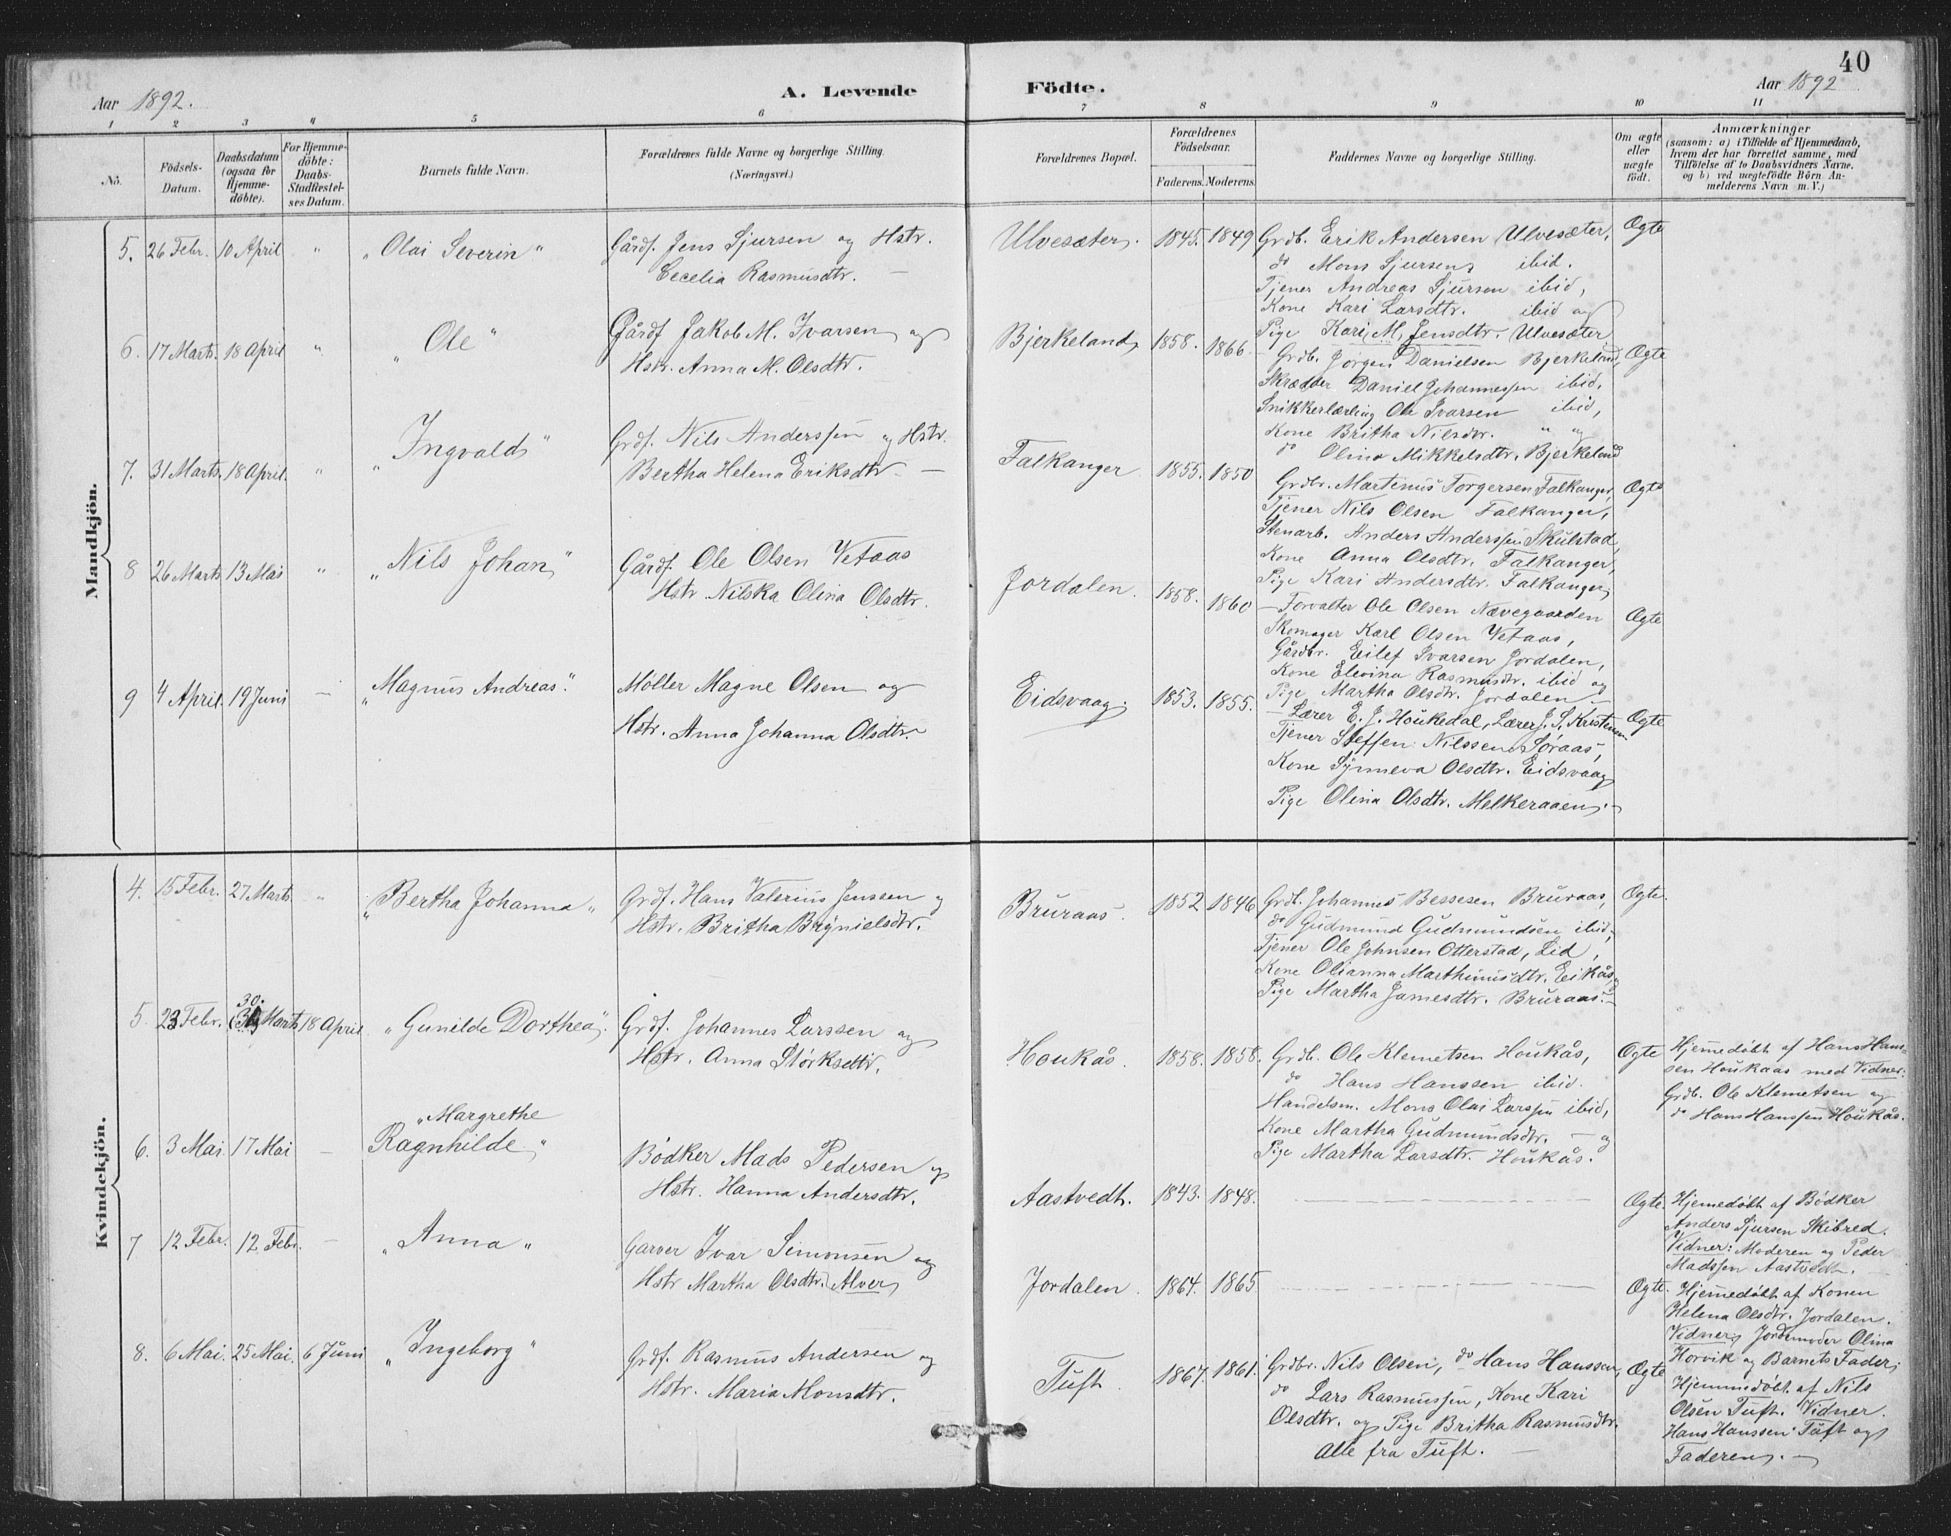 Aar 1892.
A. Levende
Födte.
Aar 1892
40
1 2 3 4 5 6 7 8 9 10 11
No.
Födsels-
Datum.
Daabsdatum
(ogsaa for
Hjemme-
döbte).
For Hjemme-
döbte:
Daabs-
Stadfæstel-
ses Datum.
Barnets fulde Navn.
Forældrenes fulde Navne og borgerlige Stilling.
(Næringsvei.)
Forældrenes Bopæl.
Forældrenes
Födselsaar.
Faderens. Moderens.
Faddernes Navne og borgerlige Stilling.
Om ægte
eller
uægte
födt.
Anmærkninger
(saasom: a) i Tilfælde af Hjemmedaab,
hvem der har forrettet samme, med
Tilföielse af to Daabsvidners Navne.
og b) ved uegtefödte Börn An-
melderens Navn m. V.)
Mandkjön.
5. 26 Febr. 10 April " "Olai Severin"
Gårdf. Jens Sjursen og Hstr.
Cecelia Rasmusdtr. —
Ulvesæter. 1845. 1849
Grdb. Erik Andersen Ulvesæter,
do Mons Sjursen, ibid.
Tjener Andreas Sjursen ibid,
Kone Kari Larsdtr. ibid og
Pige Kari M. Jensdtr. Ulvesæter
Ægte
6. 17 Marts. 18 April " "Ole"
Gårdf Jakob M. Ivarsen og
Hstr. Anna M. Olsdtr.
Bjerkeland 1858. 1866
Grdb. Jørgen Danielsen Bjerkeland,
Skrædder Daniel Johannessen ibid.
Snikkerlærling Ole Ivarsen ibid,
Kone Britha Nilsdtr. " og
do Olina Mikkelsdtr. Bjerkeland
Ægte
7. 31 Marts. 18 April. " "Ingvald"
Grdf. Nils Anderssen og Hstr.
Bertha Helena Eriksdtr —
Falkanger 1855. 1850
Grdbr. Martinus Torgersen Falkanger,
Tjener Nils Olsen Falkanger,
Stenarb. Anders Anderssen Skulstad,
Kone Anna Olsdtr. Falkanger,
Pige Kari Andersdtr. Falkanger
Ægte
8 26 Marts 13 Mai " "Nils Johan"
Gårdf. Ole Olsen Vetaas
Hstr Nilska Olina Olsdtr.
Jordalen. 1858. 1860
— Forvalter Ole Olsen Nævegaarden
Skomager Karl Olsen Vetaas,
Gårdbr. Eilef Ivarsen Jordalen,
Kone Elevina Rasmusdtr. ibid og
Pige Martha Olsdtr. Jordalen —
Ægte
9 4 April. 19 Juni — "Magnus Andreas."
Möller Magne Olsen og
Hstr. Anna Johanna Olsdtr.
Eidsvaag. 1853. 1855.
— Lærer E. J. Houkedal, Lærer J. S. Kristensen
Tjener Steffen Nilssen Søraas,
Kone Synneva Olsdtr. Eidsvaag
Pige Olina Olsdtr. Melkeraaen. —
Ægte
Kvindekjön.
4. 15 Febr. 27 Marts " "Bertha Johanna"
Grdf. Hans Valerius Jenssen og
Hstr. Britha Brynielsdtr.
Bruraas. 1852 1846
Grdb. Johannes Bessesen Bruraas,
do Gudmund Gudmundsen ibid.,
Tjener Ole Johnsen Otterstad, Lid,
Kone Olianna Marthinusdtr. Eikås og
Pige Martha Jamesdtr. Bruraas. —
Ægte.
5. 23 Febr. 30. Marts 18 April "Gunilde Dorthea".
Grdf. Johannes Larssen og
Hstr. Anna Størksdtr.
Houkås. 1858. 1858.
Grdb. Ole Klemetsen Houkås,
do Hans Hanssen ibid.
Handelsm. Mons Olai Larssen ibid,
Kone Martha Gudmundsdtr. — og
Pige Martha Larsdtr. Houkås.
Ægte
Hjemedøbt af Hans Hans-
sen Houkaas med Vidner:
Grdb. Ole Klemetsen og
do Hans Hanssen Houkås.
6. 3 Mai. 17 Mai — "Margrethe
Ragnhilde"
Bødker Mads Pedersen og
Hstr. Hanna Andersdtr.
Aastvedt. 1843. 1848.
Ægte.
Hjemedøbt af Bødker
Anders Sjursen Skibred.
Vidner: Moderen og Peder
Madssen Aastvedt. —
7 12 Febr. 12 Febr. — "Anna"
Garver Ivar Simonsen og
Hstr Martha Olsdtr. Alver
Jordalen. 1864. 1865
Ægte.
Hjemedøbt af Konen
Helena Olsdtr. Jordalen.
Vidner: Jordemoder Olina
Horvik og Barnets Fader.
8. 6 Mai. 25 Mai. 6 Juni "Ingeborg"
Grdf. Rasmus Andersen og
Hstr. Maria Monsdtr.
Tuft. 1867. 1861.
Grdbr. Nils Olsen, do Hans Hanssen,
do Lars Rasmussen, Kone Kari
Olsdtr. og Pige Britha Rasmusdtr.
Alle fra Tuft. —
Ægte
Hjemmedøbt af Nils
Olsen Tuft. Vidner.
Hans Hanssen Tuft og
Faderen. —